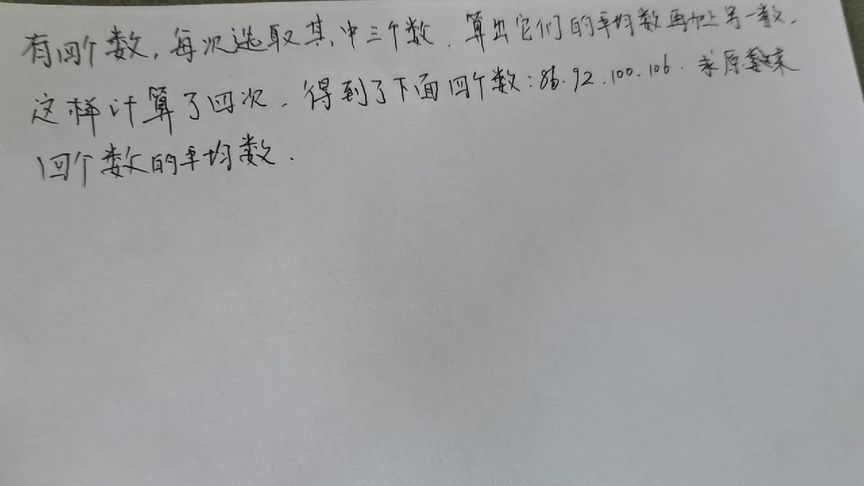 有四个数,每次选取其中三个数,算出它们的平均数再加上另一数,
这样计算了四次,得到了下面四个数:86.92.100.106.求原数来
四个数的平均数.